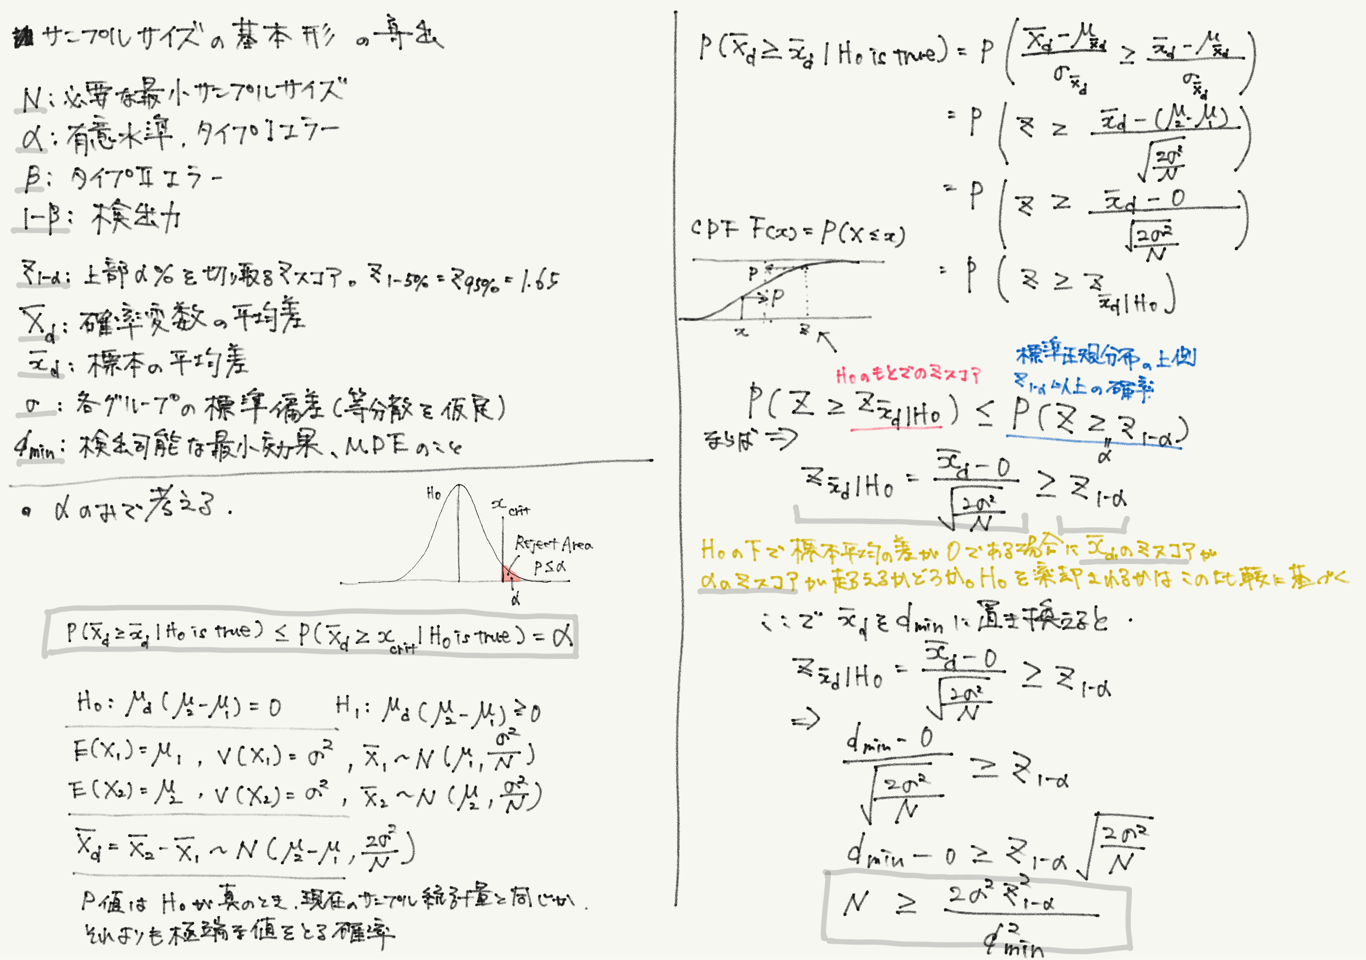 サンプルサイズの基本形の導出
N: 必要な最小サンプルサイズ
α: 有意水準、タイプIエラー
β: タイプIIエラー
1-β: 検出力
Z1-α: 上部α%を切り取るZスコア。Z1-5% = Z95% = 1.65
X̄d: 確率変数の平均差
x̄d: 標本の平均差
σ: 各グループの標準偏差(等分散を仮定)
dmin: 検出可能な最小効果、MDEのこと
• αのみで考える.
H0
xcrit
Reject Area
P≤α
α
P(X̄d ≥ x̄d | H0 is true) ≤ P(X̄d ≥ xcrit | H0 is true) = α
H0: μd(μ2-μ1) = 0 H1: μd(μ2-μ1) ≥ 0
E(X1) = μ1, V(X1) = σ², X̄1 ~ N(μ1, σ²/N)
E(X2) = μ2, V(X2) = σ², X̄2 ~ N(μ2, σ²/N)
X̄d = X̄2 - X̄1 ~ N(μ2-μ1, 2σ²/N)
P値はH0が真のとき、現在のサンプル統計量と同じか、
それよりも極端な値をとる確率
P(X̄d ≥ x̄d | H0 is true) = P((X̄d - μx̄d)/σx̄d ≥ (x̄d - μx̄d)/σx̄d)
= P(Z ≥ (x̄d - (μ2-μ1))/√(2σ²/N))
= P(Z ≥ (x̄d - 0)/√(2σ²/N))
= P(Z ≥ Zx̄d|H0)
CDF F(x) = P(X ≤ x)
P
P
x
z
H0のもとでのZスコア
標準正規分布の上側
Z1-α以上の確率
P(Z ≥ Zx̄d|H0) ≤ P(Z ≥ Z1-α)
= α
ならば ⇒
Zx̄d|H0 = (x̄d - 0)/√(2σ²/N) ≥ Z1-α
H0の下で標本平均の差が0である場合にx̄dのZスコアが
αのZスコアが超えるかどうか。H0を棄却されるかはこの比較に基づく
ここでx̄dをdminに置き換えると.
Zx̄d|H0 = (x̄d - 0)/√(2σ²/N) ≥ Z1-α
⇒
(dmin - 0)/√(2σ²/N) ≥ Z1-α
dmin - 0 ≥ Z1-α √(2σ²/N)
N ≥ 2σ²Z²1-α/d²min